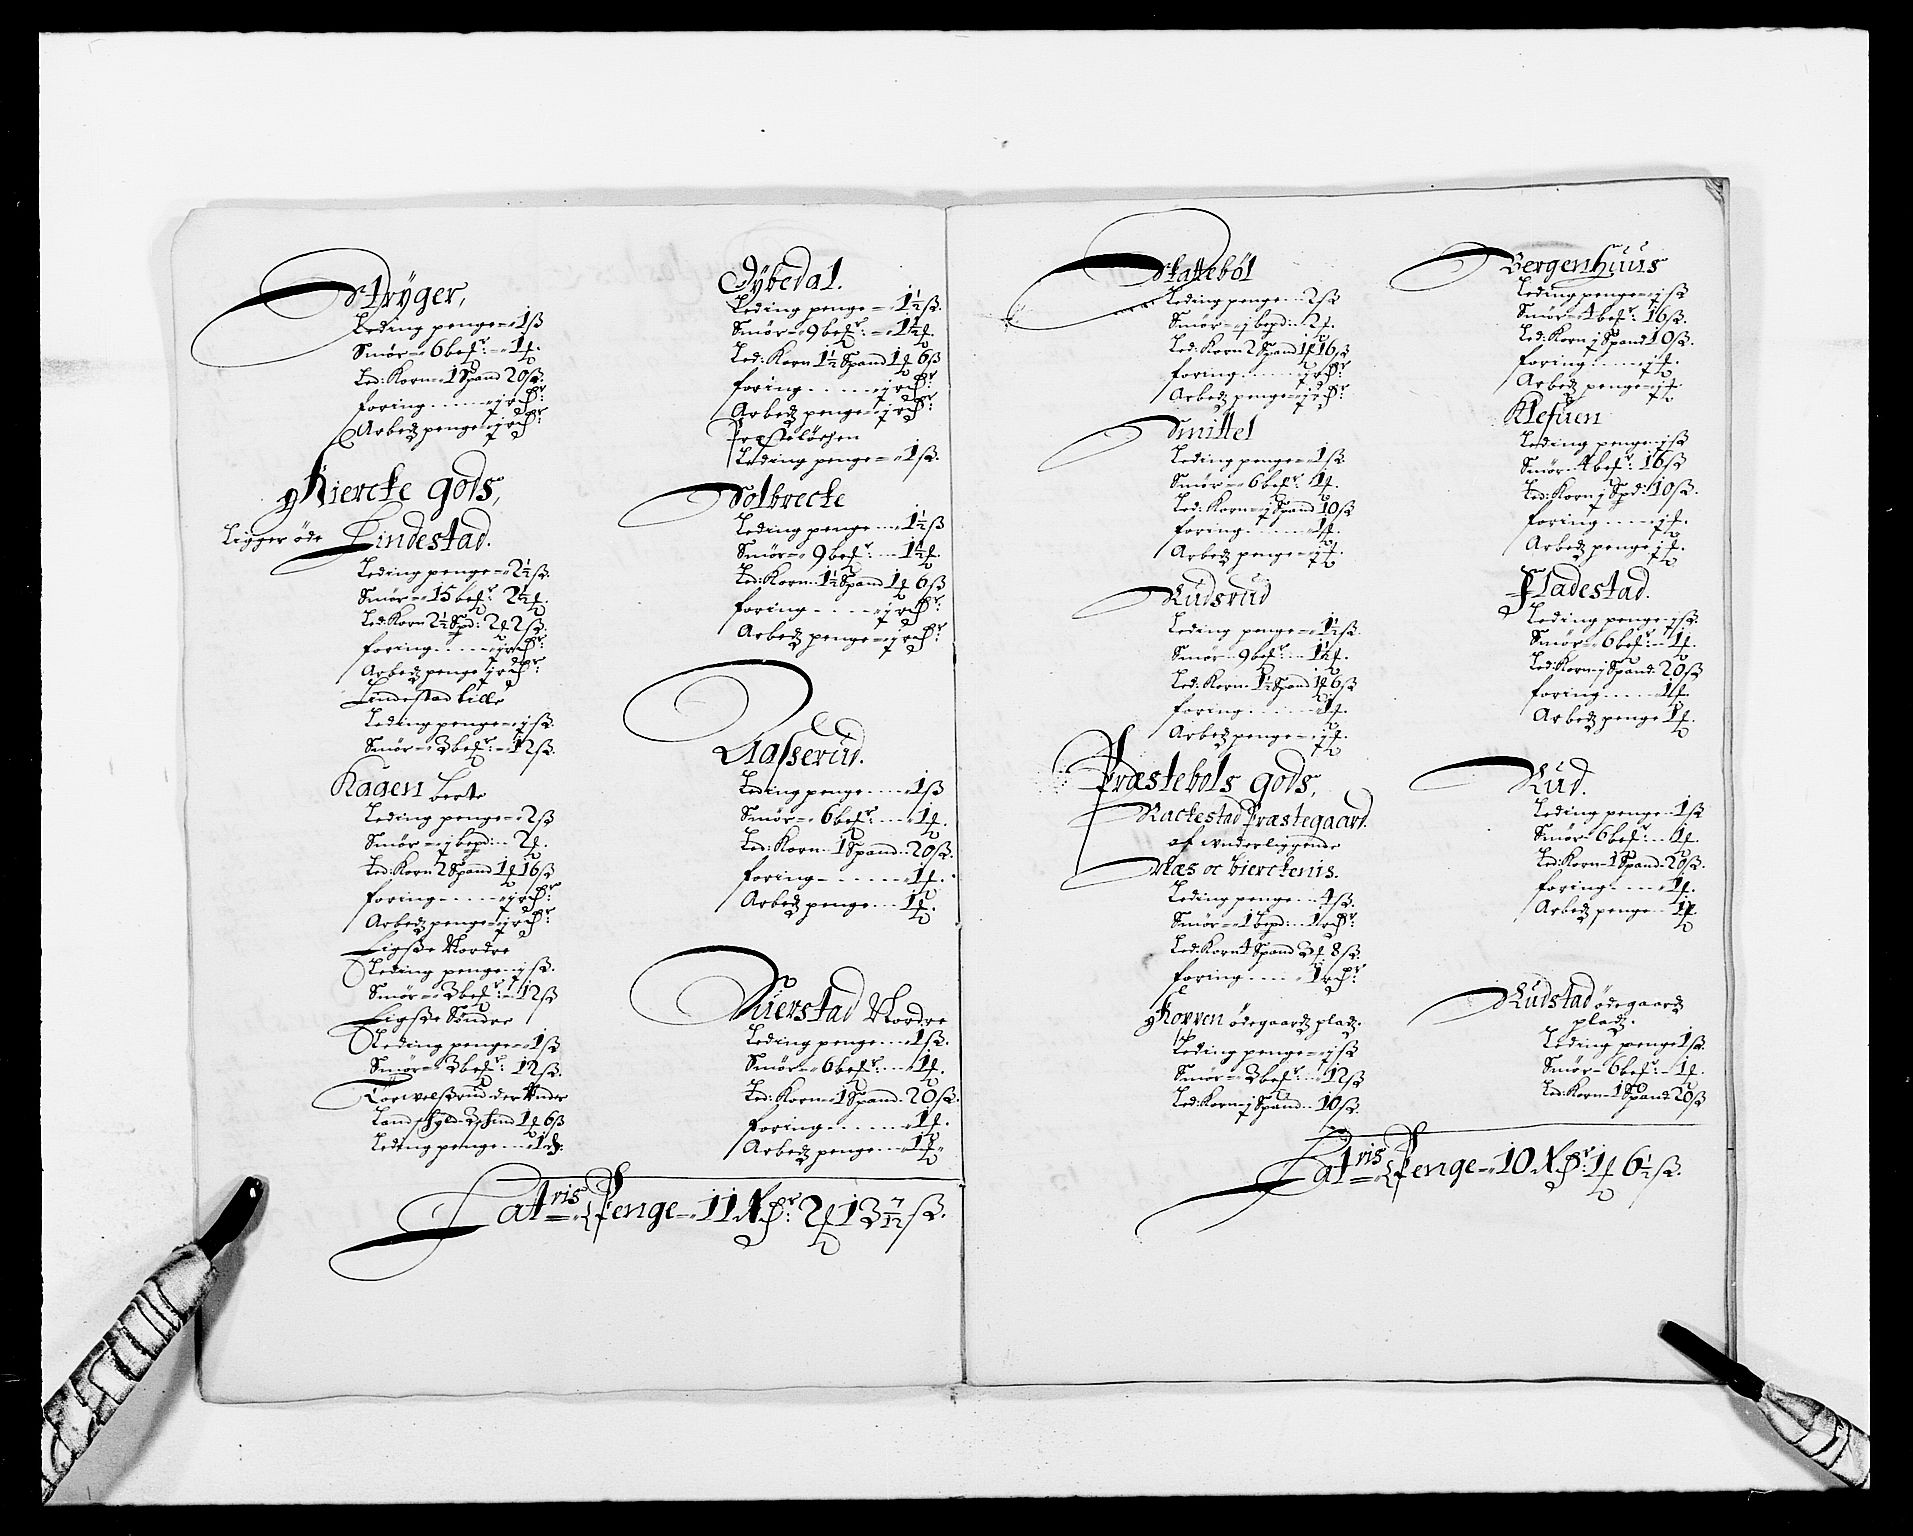 Strÿger,
Leding penge - 1 ß
Smør - 6 bes^r: - 1 ₰
Led: Korn - 1 Spand 20 ß.
foring - - - j rd^r:
Arbedz penge - j rd^r:
Kiercke gods,
Ligger øde Lindestad.
Leding penge - 2½ ß.
Smør - 15 bes^r: 2½ ₰.
Led: Korn 2½ Spd: 2 ₰ 2 ß.
foring - - - j rd^r:
Arbedz penge j rd^r:
Lindestad lille
Leding penge - j ß.
Smør - 3 bes^r: - 12 ß.
Kaagen
Leding penge - 2 ß
Smør - j bpd: - 2 ₰.
Led: Korn 2 Spand 1 ₰ 16 ß
foring - - - j rd^r:
Arbedz penge - j rd^r:
Nordre
Leding penge - j ß.
Smør - 3 bes^r: - 12 ß
Søndre
Leding penge - 1 ß
Smør - 3 bes^r: 12 ß.
Land schyld 3 hud 1 ₰ 6 ß
Leding penge - 1 ß.
Dÿbedal.
Leding penge - 1½ ß.
Smør - 9 bes^r: - 1½ ₰.
Led: Korn 1½ Spand 1 ₰ 6 ß
foring - - - j rd^r:
Arbedz penge - j rd^r:
Leding penge - 1 ß.
Solbrecke
Leding penge - 1½ ß
Smør - 9 bes^r: - 1½ ₰.
Led: Korn - 1½ Spand 1 ₰ 6 ß
foring - - - j rd^r:
Arbedz penge - j rd^r:
Aasserud.
Leding penge - - 1 ß
Smør - 6 bes^r: - 1 ₰.
Led: Korn - 1 Spand - 20 ß.
foring - - - - 1 ₰.
Arbedz penge - - 1 ₰.
Nordre
Leding penge - - 1 ß.
Smør - 6 bes^r: - 1 ₰.
Led: Korn - 1 Spand - 20 ß.
foring - - - - 1 ₰.
Arbedz penge - - 1 ₰.
Lat^ris Penge - 11 Rd^r: 2 ₰ 13 7/12 ß.
Skattebøl
Leding penge - - 2 ß
Smør - j bpd: - 2 ₰.
Led: Korn 2 Spand 1 ₰ 16 ß
foring - - - j rd^r:
Arbedz penge - j rd^r:
Smittel
Leding penge - 1 ß.
Smør - 6 bes^r: 1 ₰.
Led: Korn - j Spand 10 ß
foring - - - 1 ₰.
Arbedz penge - j ₰.
Rudsrud
Leding penge - 1½ ß.
Smør - 9 bes^r: - 1½ ₰.
Led: Korn - 1½ Spand 1 ₰ 6 ß
foring - - - 1 ₰.
Arbedz penge - j ₰.
Præstebols gods,
Rackestad Præstegaard.
af underliggende
Næs oc bierckenis.
Leding penge - 4 ß.
Smør - 1 bpd: - 1 rd^r:
Led: Korn 4 Spand 3 ₰ 8 ß.
foring - - - 1 rd^r:
ødegaardz pladz.
Leding penge - j ß
Smør - 3 bes^r: - 12 ß
Led: Korn - j Spand - 10 ß.
Bergenhuus
Leding penge - j ß
Smør - 4 bes^r: 16 ß.
Led: Korn j Spand 10 ß.
foring - - - j ₰.
Arbedz penge - j ₰.
Klefuen
Leding penge - j ß
Smør - 4 bes^r: 16 ß
Led: Korn j Spd: 10 ß.
foring - - - j ₰.
Arbedz penge j ₰.
Fladestad.
Leding penge - j ß.
Smør - 6 bes^r: - 1 ₰.
Led: Korn - j Spand 20 ß
foring - - - 1 ₰.
Arbedz penge 1 ₰.
Rud.
Leding penge - 1 ß
Smør - 6 bes^r: - 1 ₰.
Led: Korn - 1 Spand - 20 ß.
foring - - - 1 ₰.
Arbedz penge - 1 ₰.
Rudstad ødegaardz
pladz.
Leding penge 1 ß.
Smør - 6 bes^r: - 1 ₰.
Led: Korn - 1 Spand 20 ß
Lat^ris Penge - 10 Rd^r: 1 ₰ 6½ ß.